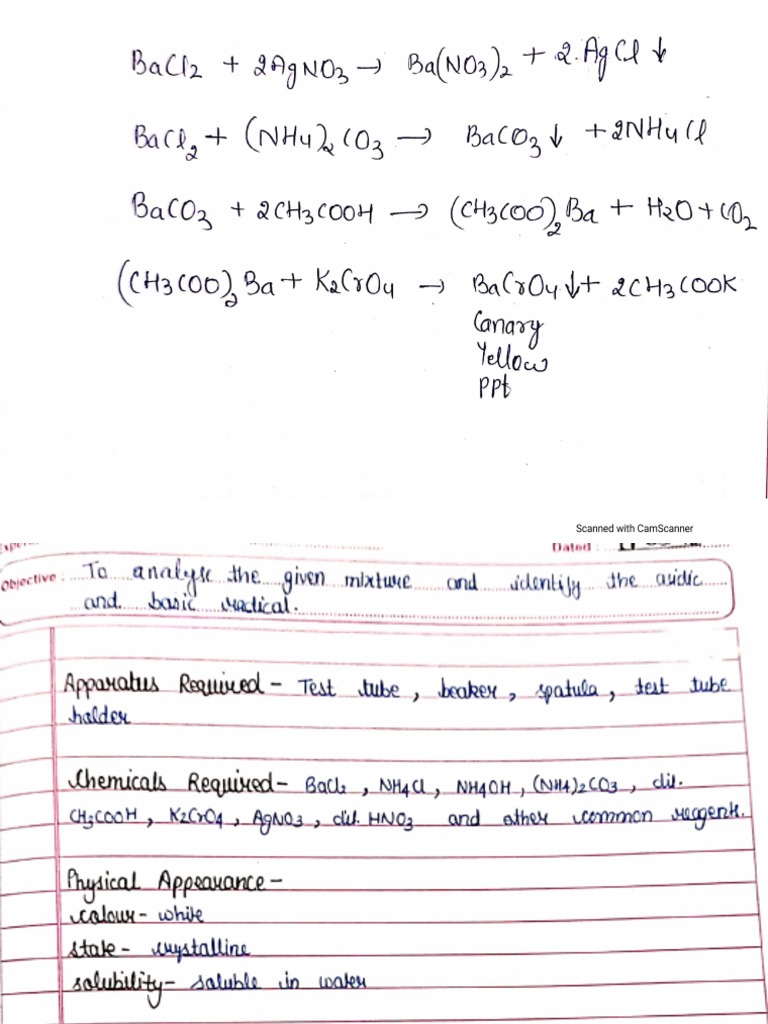 BaCl2 + 2AgNO3 → Ba(NO3)2 + 2.AgCl ↓
BaCl2 + (NH4)2 CO3 → BaCO3 ↓ + 2NH4Cl
BaCO3 + 2CH3COOH → (CH3COO)2 Ba + H2O + CO2
(CH3COO)2 Ba + K2CrO4 → BaCrO4 ↓ + 2CH3COOK
Canary
Yellow
PPt
Scanned with CamScanner
Dated :
Objective : To analyse the given mixture and identify the acidic
and basic radical.
Apparatus Required - Test tube , beaker , spatula , test tube
holder
Chemicals Required - BaCl2 , NH4Cl , NH4OH , (NH4)2CO3 , dil.
CH3COOH , K2CrO4 , AgNO3 , dil. HNO3 and other common reagents.
Physical Appearance -
colour - white
state - crystalline
solubility - soluble in water